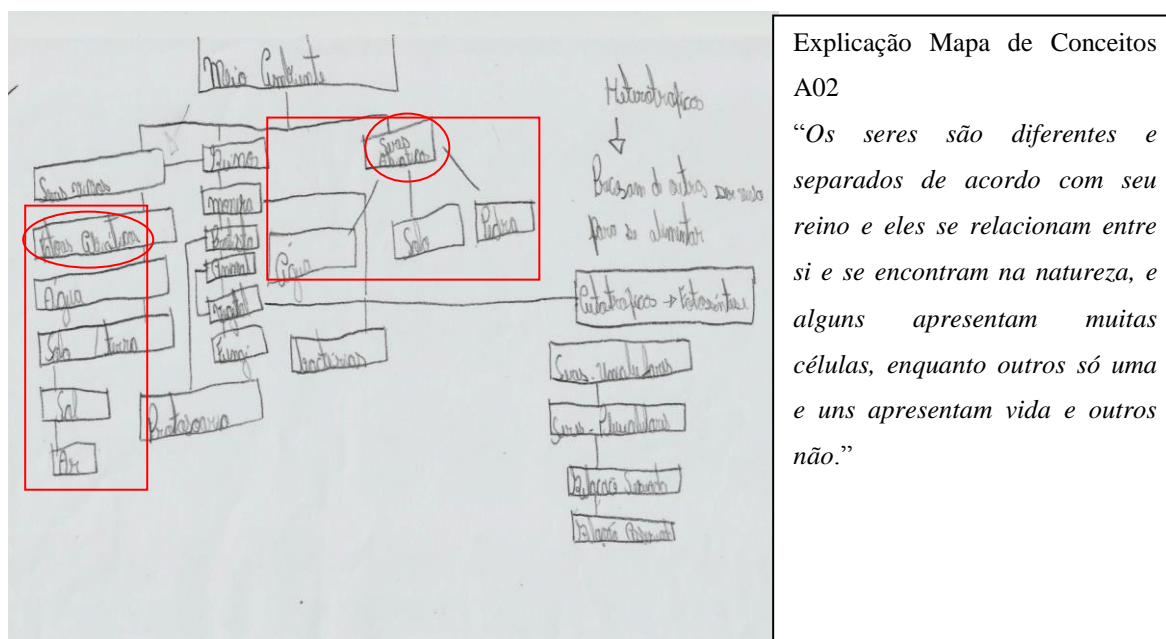 Meio Ambiente
Seres vivos
Fatores Abióticos
Água
Solo / terra
Sal
Ar
Reinos
monera
Protista
Animal
Vegetal
Fungi
Protozoario
bactérias
Seres
Abioticos
Água
Solo
Pedra
Heterotroficos
Precisam de outros ser vivo
para se alimentar
Autotroficos → Fotossíntese
Seres - Unicelulares
Seres - Pluricelulares
Relação
Relação
Explicação Mapa de Conceitos
A02
“Os seres são diferentes e
separados de acordo com seu
reino e eles se relacionam entre
si e se encontram na natureza, e
alguns apresentam muitas
células, enquanto outros só uma
e uns apresentam vida e outros
não.”